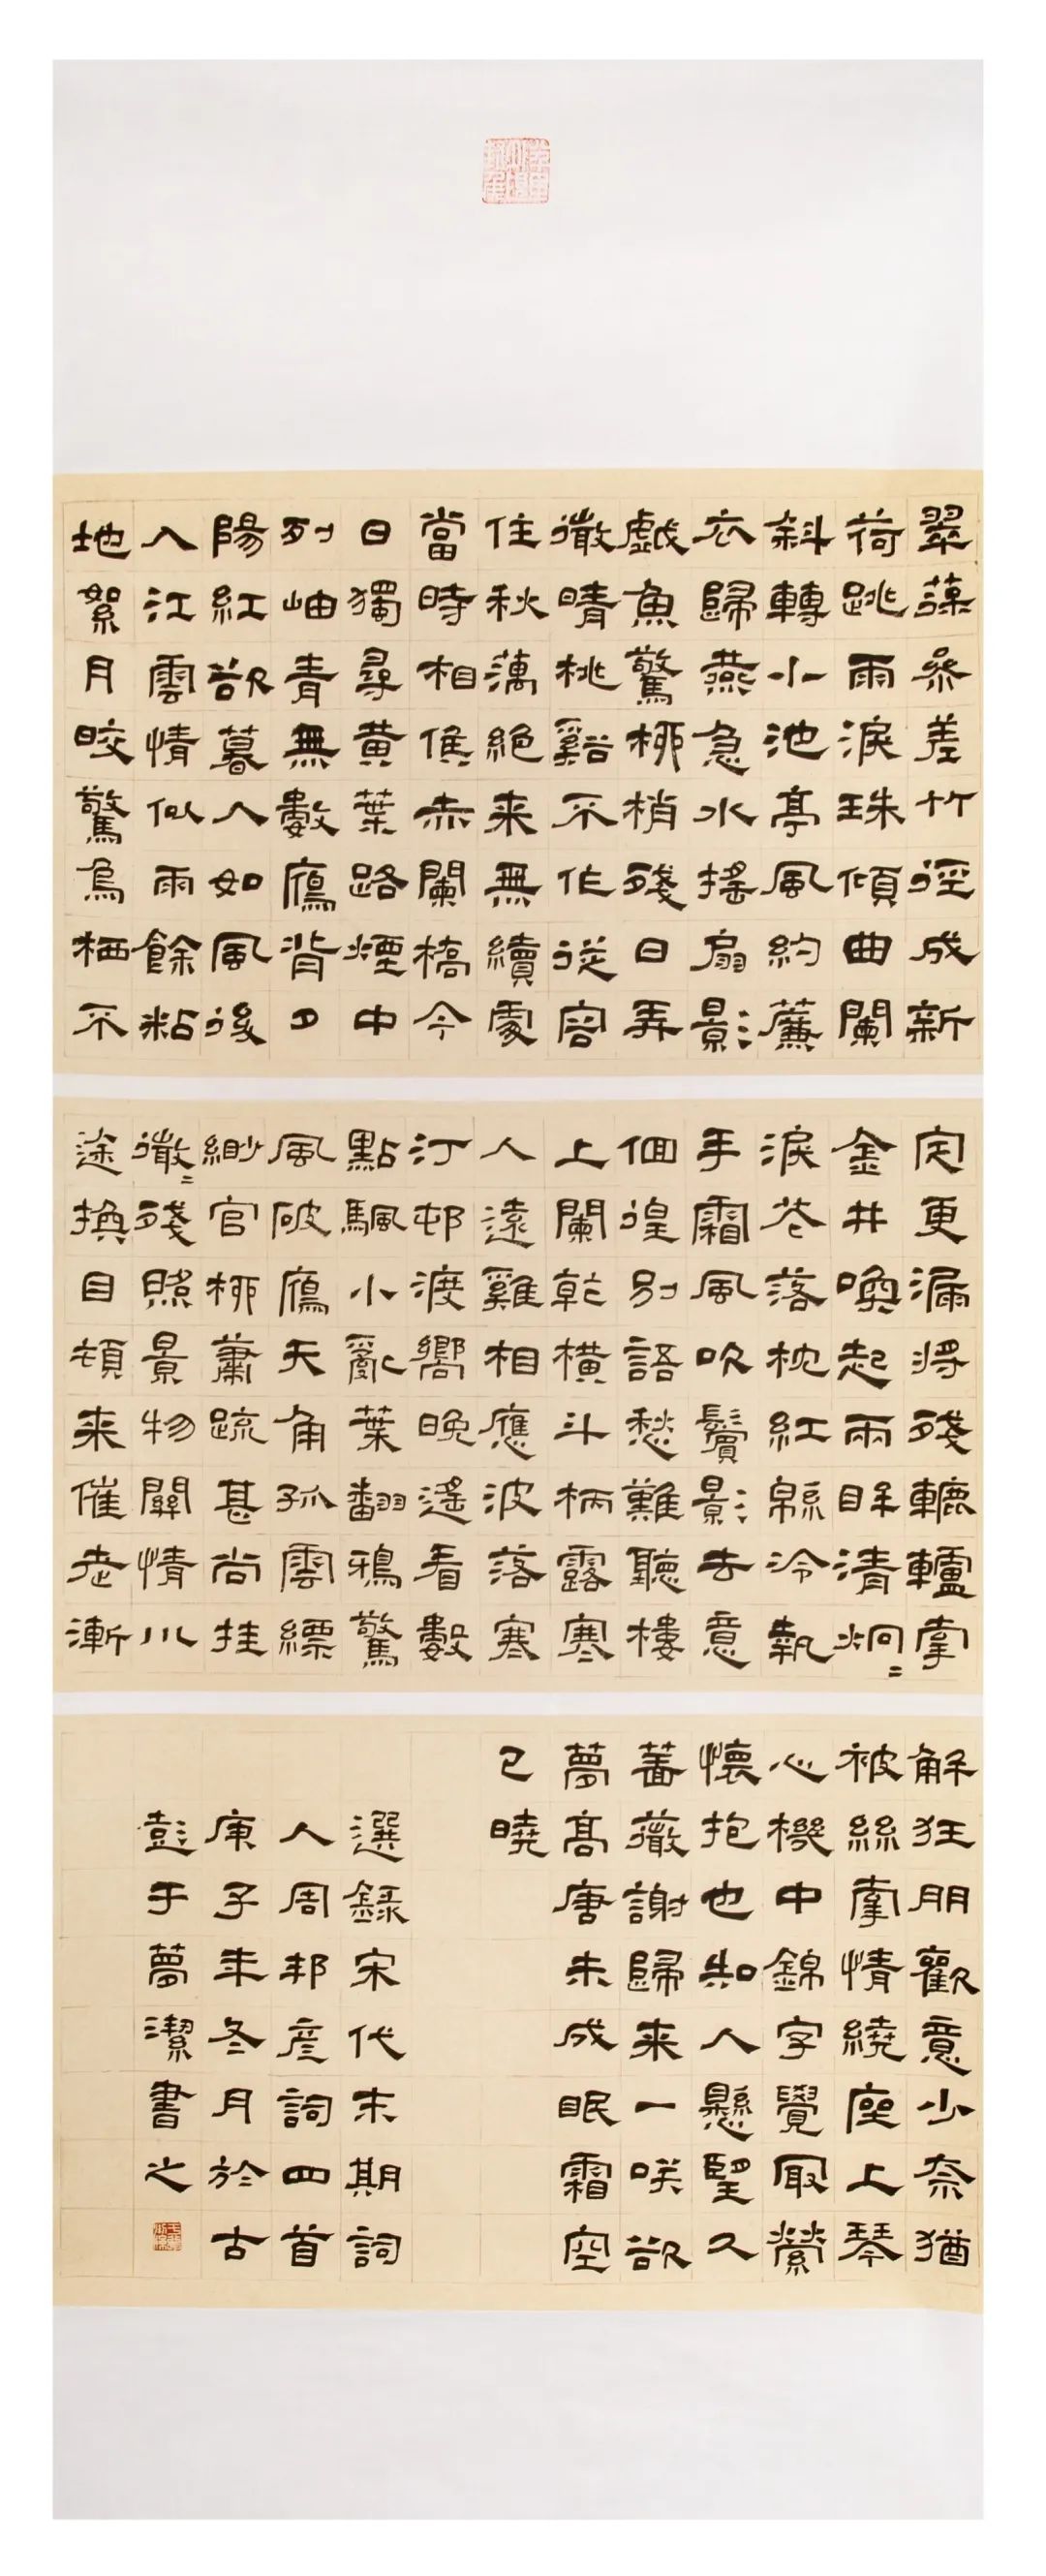 翠葆參差竹徑成新
荷跳雨淚珠傾曲闌
斜轉小池亭風約簾
衣歸燕急水搖扇影
戲魚驚柳梢殘日弄
微晴桃谿不作從容
住秋藕絕来無續處
當時相候赤闌橋今
日獨尋黃葉路煙中
列岫青無數鴈背夕
陽紅欲暮人如風後
入江雲情似雨餘粘
地絮月皎驚烏栖不
定更漏將殘轆轤牽
金井喚起兩眸清炯=
淚花落枕紅緜冷執
手霜風吹鬢影去意
徊徨別語愁難聽樓
上闌乾橫斗柄露寒
人遠雞相應波落寒
汀邨渡嚮晚遙看數
點颿小亂葉翻鴉驚
風破鴈天角孤雲縹
緲官柳蕭疏甚尚挂
微=殘照景物關情川
途換目頓来催老漸
解狂朋歡意少奈猶
被絲牽情繞座上琴
心機中錦字覺最縈
懷抱也知人懸望久
薔薇謝歸来一咲欲
夢高唐未成眠霜空
已曉
選錄宋代末期詞
人周邦彥詞四首
庚子年冬月於古
彭于夢潔書之